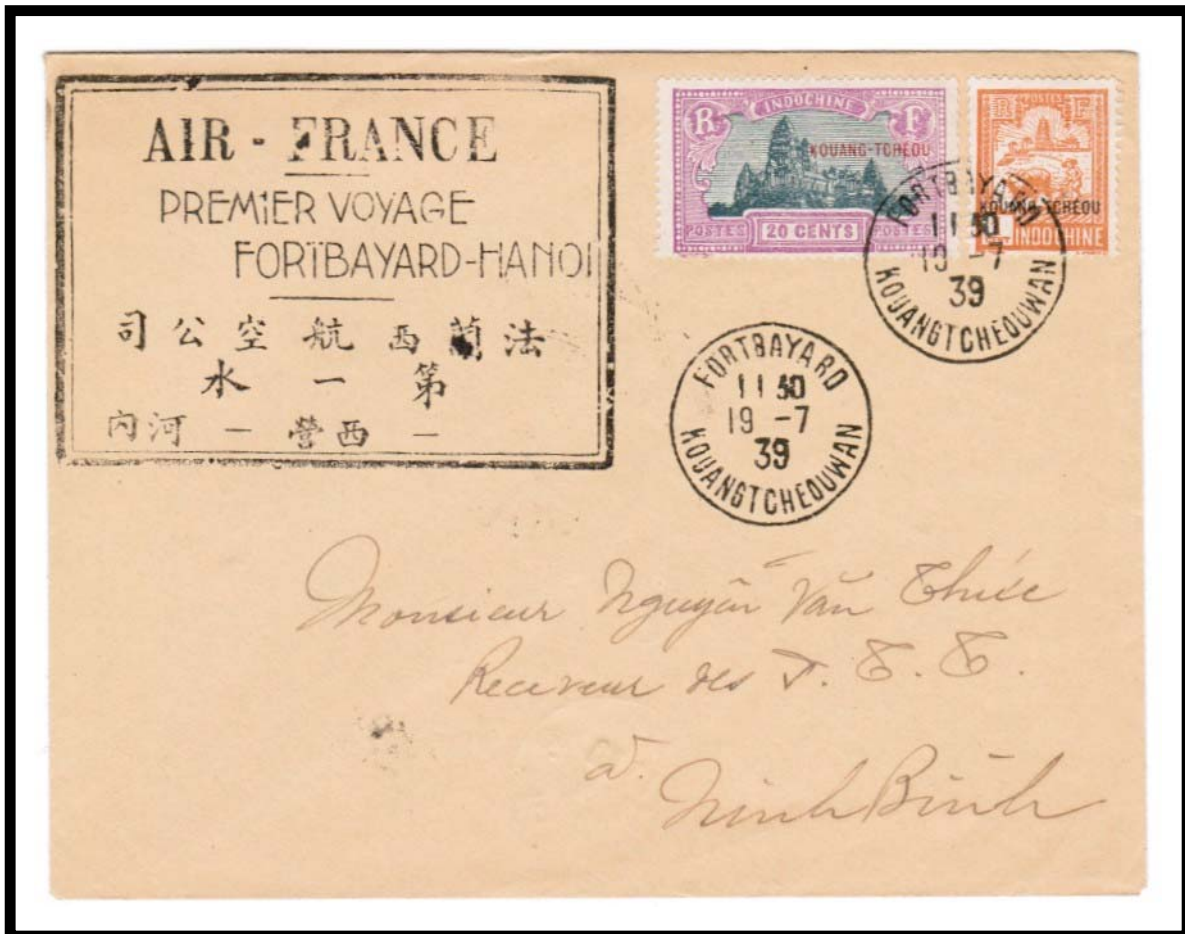 AIR - FRANCE
PREMIER VOYAGE
FORTBAYARD-HANOI
法蘭西航空公司
第一水
— 西營 — 河內
INDOCHINE
R F
KOUANG-TCHEOU
POSTES 20 CENTS POSTES
POSTES
R F
KOUANG-TCHEOU
INDOCHINE
FORTBAYARD
11 30
19 -7
39
KOUANGTCHEOUWAN
FORTBAYARD
11 30
19 -7
39
KOUANGTCHEOUWAN
Monsieur Nguyễn Văn Thức
Receveur des P. T. T.
à.
Ninh Bình